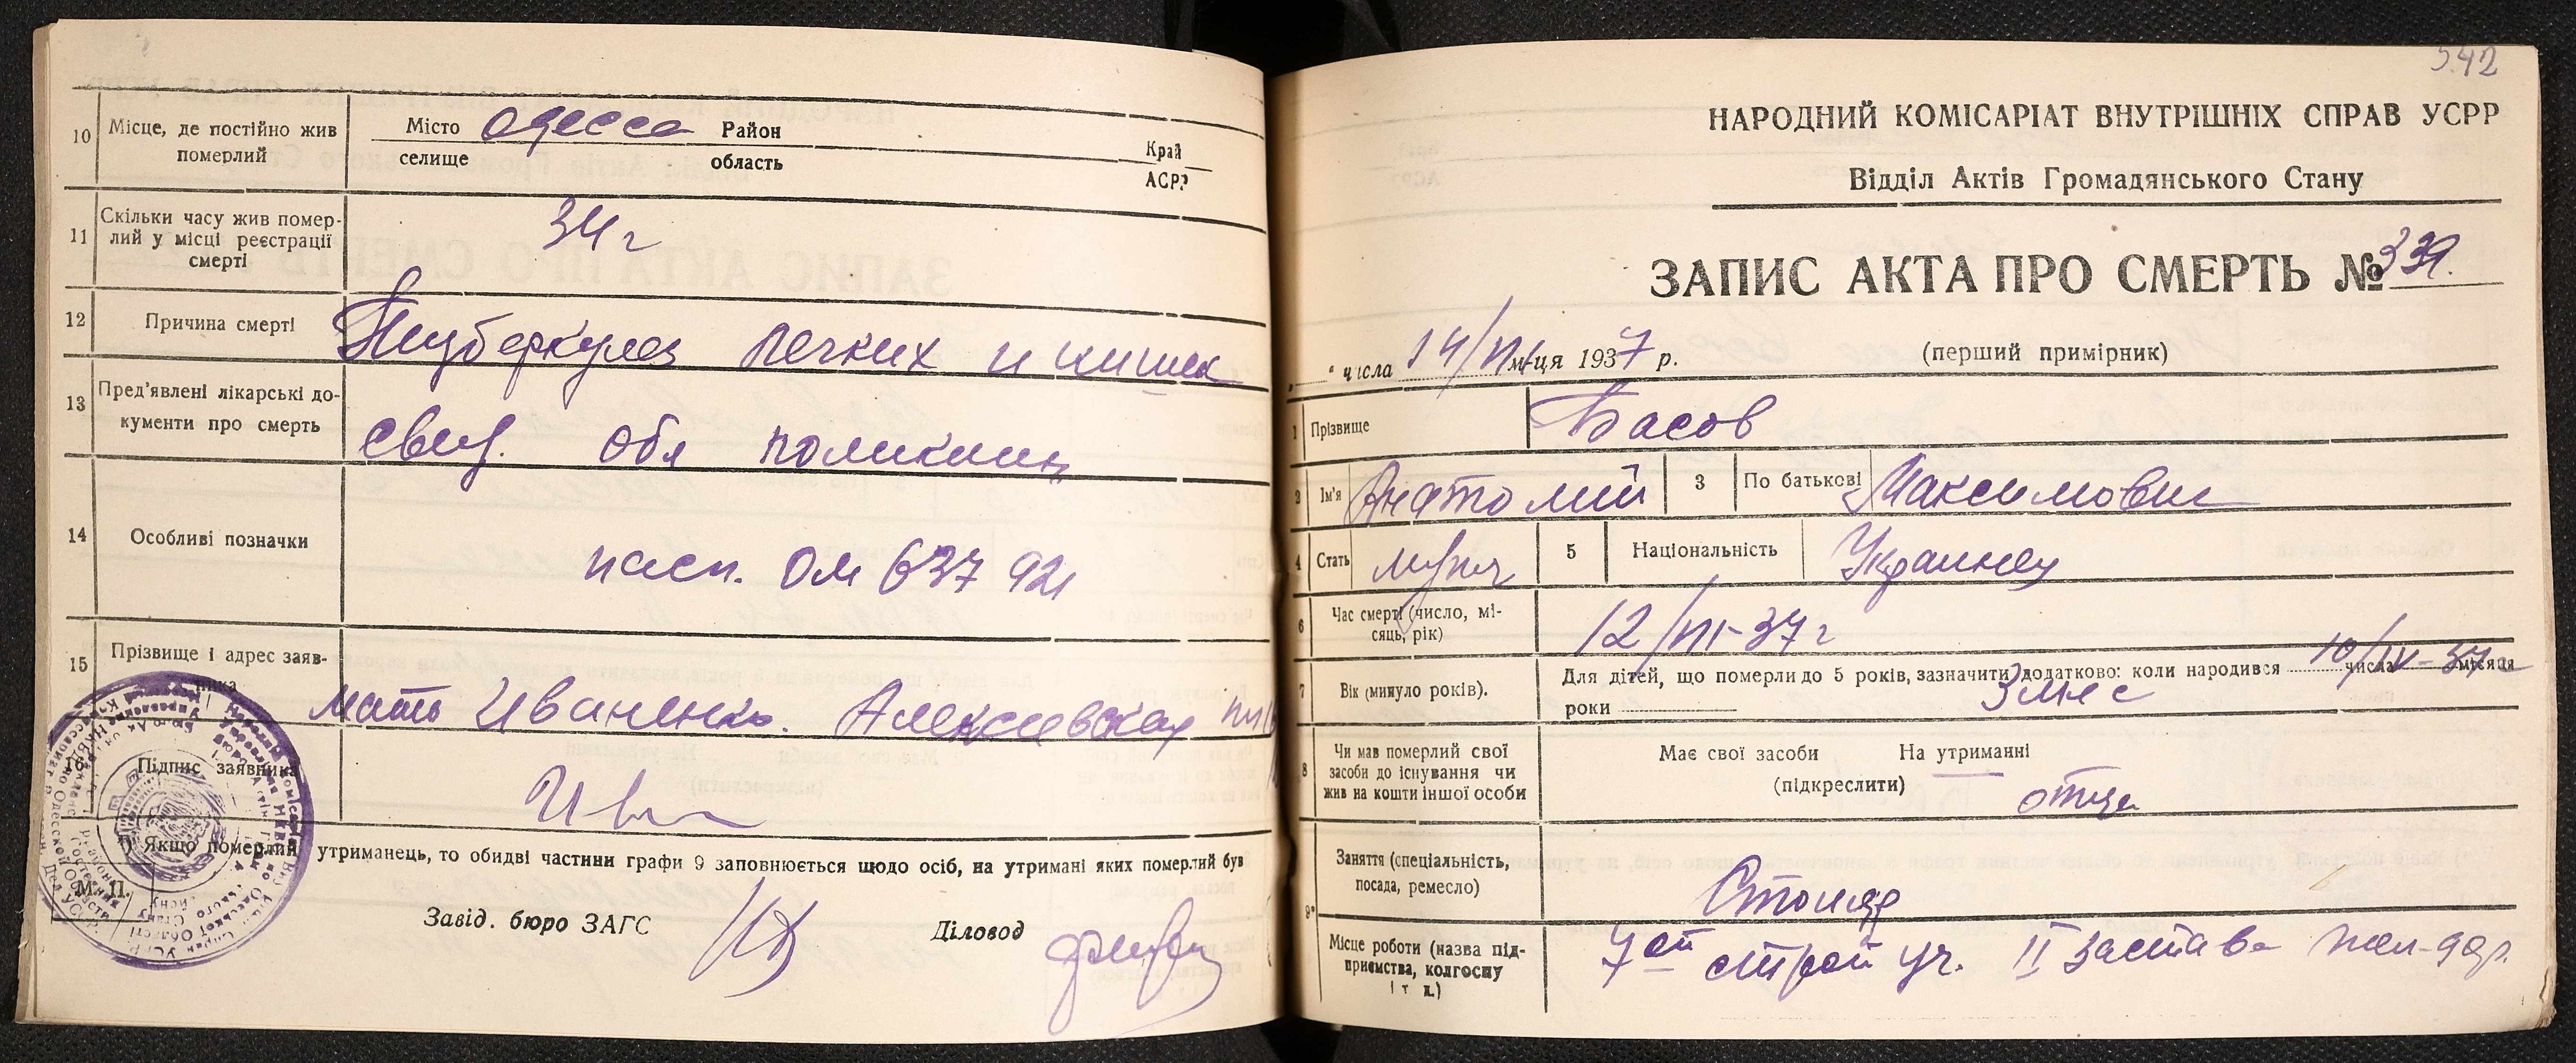 10 Місце, де постійно жив померлий
Місто Одесса Район Край
селище область АСРР
11 Скільки часу жив помер-
лий у місці реєстрації
смерті
34 г
12 Причина смерті Туберкулез легких и кишек
13 Пред'явлені лікарські до-
кументи про смерть
свид. Обл поликлин
14 Особливі позначки
пасп. ОМ 637 921
15 Прізвище і адрес заяв-
ника
мать Иваненко. Алексеевская
16 Підпис заявника
Ив
*) Якщо померлий утриманець, то обидві частини графи 9 заповнюється щодо осіб, на утримані яких померлий був
М. П.
Завід. бюро ЗАГС Діловод
342
НАРОДНИЙ КОМІСАРІАТ ВНУТРІШНІХ СПРАВ УСРР
Відділ Актів Громадянського Стану
ЗАПИС АКТА ПРО СМЕРТЬ №339.
" числа 14/VII м-ця 1937 р. (перший примірник)
1 Прізвище Басов
2 Ім'я Анатолий 3 По батькові Максимович
4 Стать муж 5 Національність Украинец
6 Час смерті (число, мі-
сяць, рік)
12/VII-37 г
7 Вік (минуло років).
Для дітей, що померли до 5 років, зазначити додатково: коли народився 10/IV-37 числа місяця
роки 3 мес
8 Чи мав померлий свої
засоби до існування чи
жив на кошти іншої особи
Має свої засоби На утриманні
(підкреслити) отца
9* Заняття (спеціальність,
посада, ремесло)
Столяр
Місце роботи (назва під-
приємства, колгоспу
і т. д.)
7ой строй уч. II застава жел-дор.